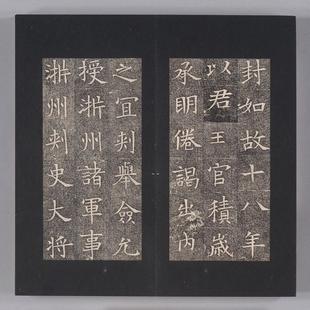 封如故十八年
以君王官積歲
承明倦謁出內
之宜刺舉僉允
授淅州諸軍事
淅州刺史大將